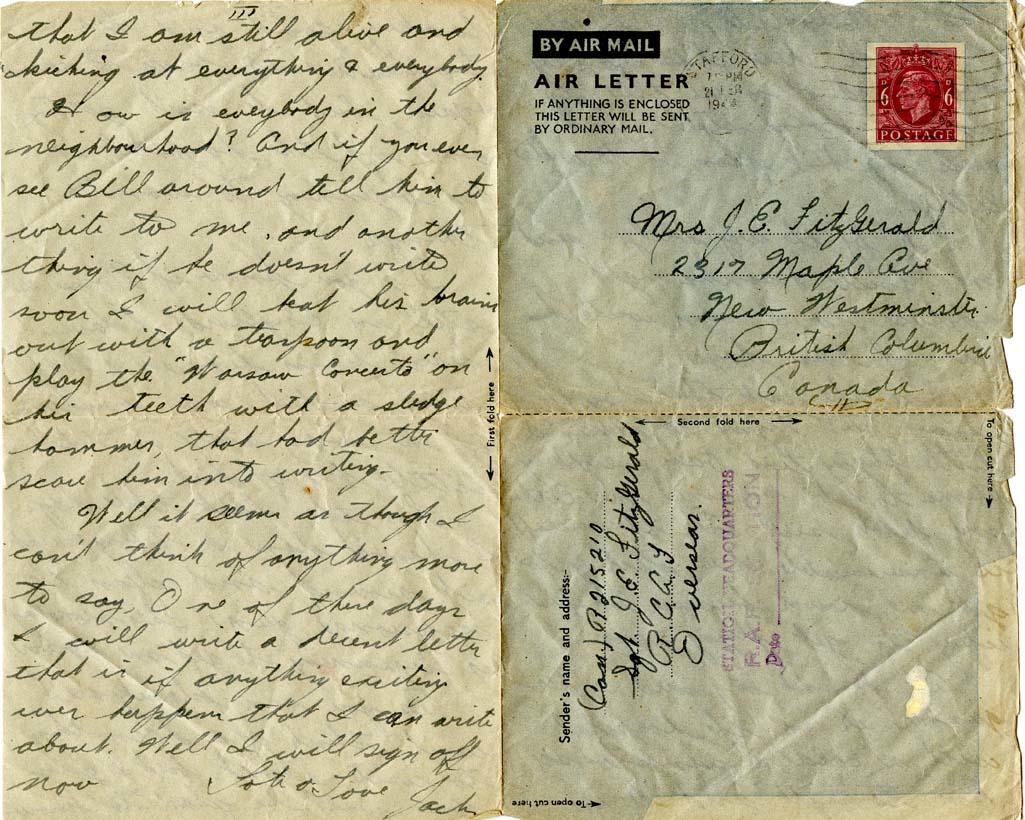 III
that I am still alive and
kicking at everything & everybody.
How is everybody in the
neighbourhood? And if you ever
see Bill around tell him to
write to me, and another
thing if he doesn't write
soon I will beat his brains
out with a teaspoon and
play the "Warsaw Concerto" on
his teeth with a sledge
hammer, that had better
scare him into writing.
Well it seems as though I
can't think of anything more
to say, One of these days
I will write a decent letter
that is if anything exciting
ever happens that I can write
about. Well I will sign off
now Lots o Love
Jack
First fold here
BY AIR MAIL
AIR LETTER
IF ANYTHING IS ENCLOSED
THIS LETTER WILL BE SENT
BY ORDINARY MAIL.
STAFFORD
PM
21
19
D D
6 6
POSTAGE
Mrs J. E. FitzGerald
2317 Maple Ave
New Westminster
British Columbia
Canada
Second fold here
To open cut here
Sender's name and address:-
(Can) R215210
Sgt J. E. FitzGerald
R.C.A.F
Overseas.
STATION HEADQUARTERS
R.A.F. STATION
To open cut here